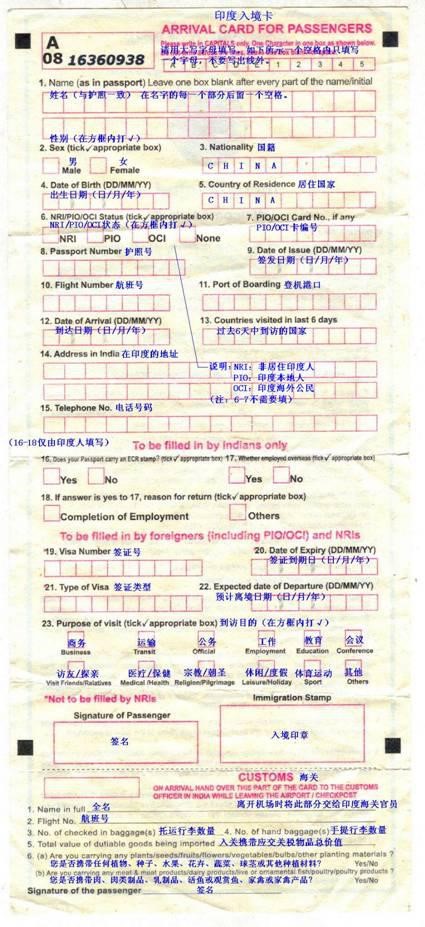 印度入境卡
ARRIVAL CARD FOR PASSENGERS
A
08 16360938
Please write in CAPITALS only. One Character in one box as shown below.
请用大写字母填写。如下所示一个空格内只填写一个字母，不要写出线外。
A B C D E 1 2 3 4 5
1. Name (as in passport) Leave one box blank after every part of the name/initial
姓名（与护照一致） 在名字的每一个部分后留一个空格。
性别（在方框内打√）
2. Sex (tick✓appropriate box) 3. Nationality 国籍
男 女
Male Female
C H I N A
4. Date of Birth (DD/MM/YY) 5. Country of Residence 居住国家
出生日期（日/月/年）
C H I N A
6. NRI/PIO/OCI Status (tick✓appropriate box) 7. PIO/OCI Card No., if any
NRI/PIO/OCI状态（在方框内打√） PIO/OCI卡编号
NRI PIO OCI None
8. Passport Number 护照号 9. Date of Issue (DD/MM/YY)
签发日期（日/月/年）
10. Flight Number 航班号 11. Port of Boarding 登机港口
12. Date of Arrival (DD/MM/YY) 13. Countries visited in last 6 days
到达日期（日/月/年） 过去6天中到访的国家
14. Address in India 在印度的地址
说明：NRI：非居住印度人
PIO：印度本地人
OCI：印度海外公民
（注：6-7不需要填）
15. Telephone No. 电话号码
（16-18仅由印度人填写）
To be filled in by Indians only
16. Does your Passport carry an ECR stamp? (tick✓ appropriate box) 17. Whether employed overseas (tick✓appropriate box)
Yes No Yes No
18. If answer is yes to 17, reason for return (tick✓appropriate box)
Completion of Employment Others
To be filled in by foreigners (including PIO/OCI) and NRIs
*19. Visa Number 签证号 *20. Date of Expiry (DD/MM/YY)
签证到期日（日/月/年）
*21. Type of Visa 签证类型 22. Expected date of Departure (DD/MM/YY)
预计离境日期（日/月/年）
23. Purpose of visit (tick✓appropriate box) 到访目的（在方框内打√）
商务 运输 公务 工作 教育 会议
Business Transit Official Employment Education Conference
访友/探亲 医疗/保健 宗教/朝圣 休闲/度假 体育运动 其他
Visit Friends/Relatives Medical /Health Religion/Pilgrimage Leisure/Holiday Sport Others
*Not to be filled by NRIs Immigration Stamp
Signature of Passenger
签名 入境印章
CUSTOMS 海关
ON ARRIVAL HAND OVER THIS PART OF THE CARD TO THE CUSTOMS
OFFICER IN INDIA WHILE LEAVING THE AIRPORT / CHECKPOST
1. Name in full 全名 离开机场时将此部分交给印度海关官员
2. Flight No. 航班号
3. No. of checked in baggage(s) 托运行李数量 4. No. of hand baggage(s) 手提行李数量
5. Total value of dutiable goods being imported 入关携带应交关税物品总价值
6. (a) Are you carrying any plants/seeds/fruits/flowers/vegetables/bulbs/other planting materials ?
您是否携带任何植物、种子、水果、花卉、蔬菜、球茎或其他种植材料？ Yes/No
(b) Are you carrying any meat & meat products/dairy products/live or ornamental fish/poultry/poultry products ?
您是否携带肉、肉类制品、乳制品、活鱼或观赏鱼、家禽或家禽产品？ Yes/No
Signature of the passenger 签名